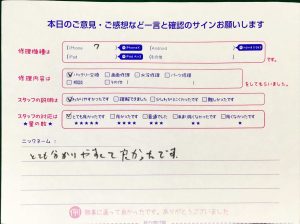 本日のご意見・ご感想など一言と確認のサインお願いします
修理機種は iPhone 7 iPhoneX Android
iPad iPad Air3 その他
です。
修理内容は バッテリー交換 画面修理 水没修理 パーツ修理
相談 その他
をしてもらいました。
スタッフの説明は わかりやすかったです 理解できました 難しかったです
スタッフの対応は とても良かったです 良かったです 普通でした
★星の数★
ニックネーム:
とても分かりやすくて良かったです。
無事に直って良かったです。ありがとうございました